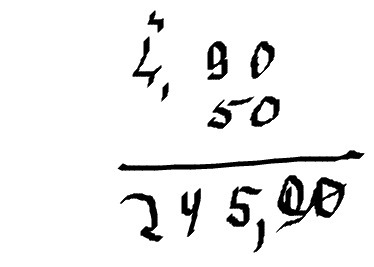 4
4,90
50
245,00